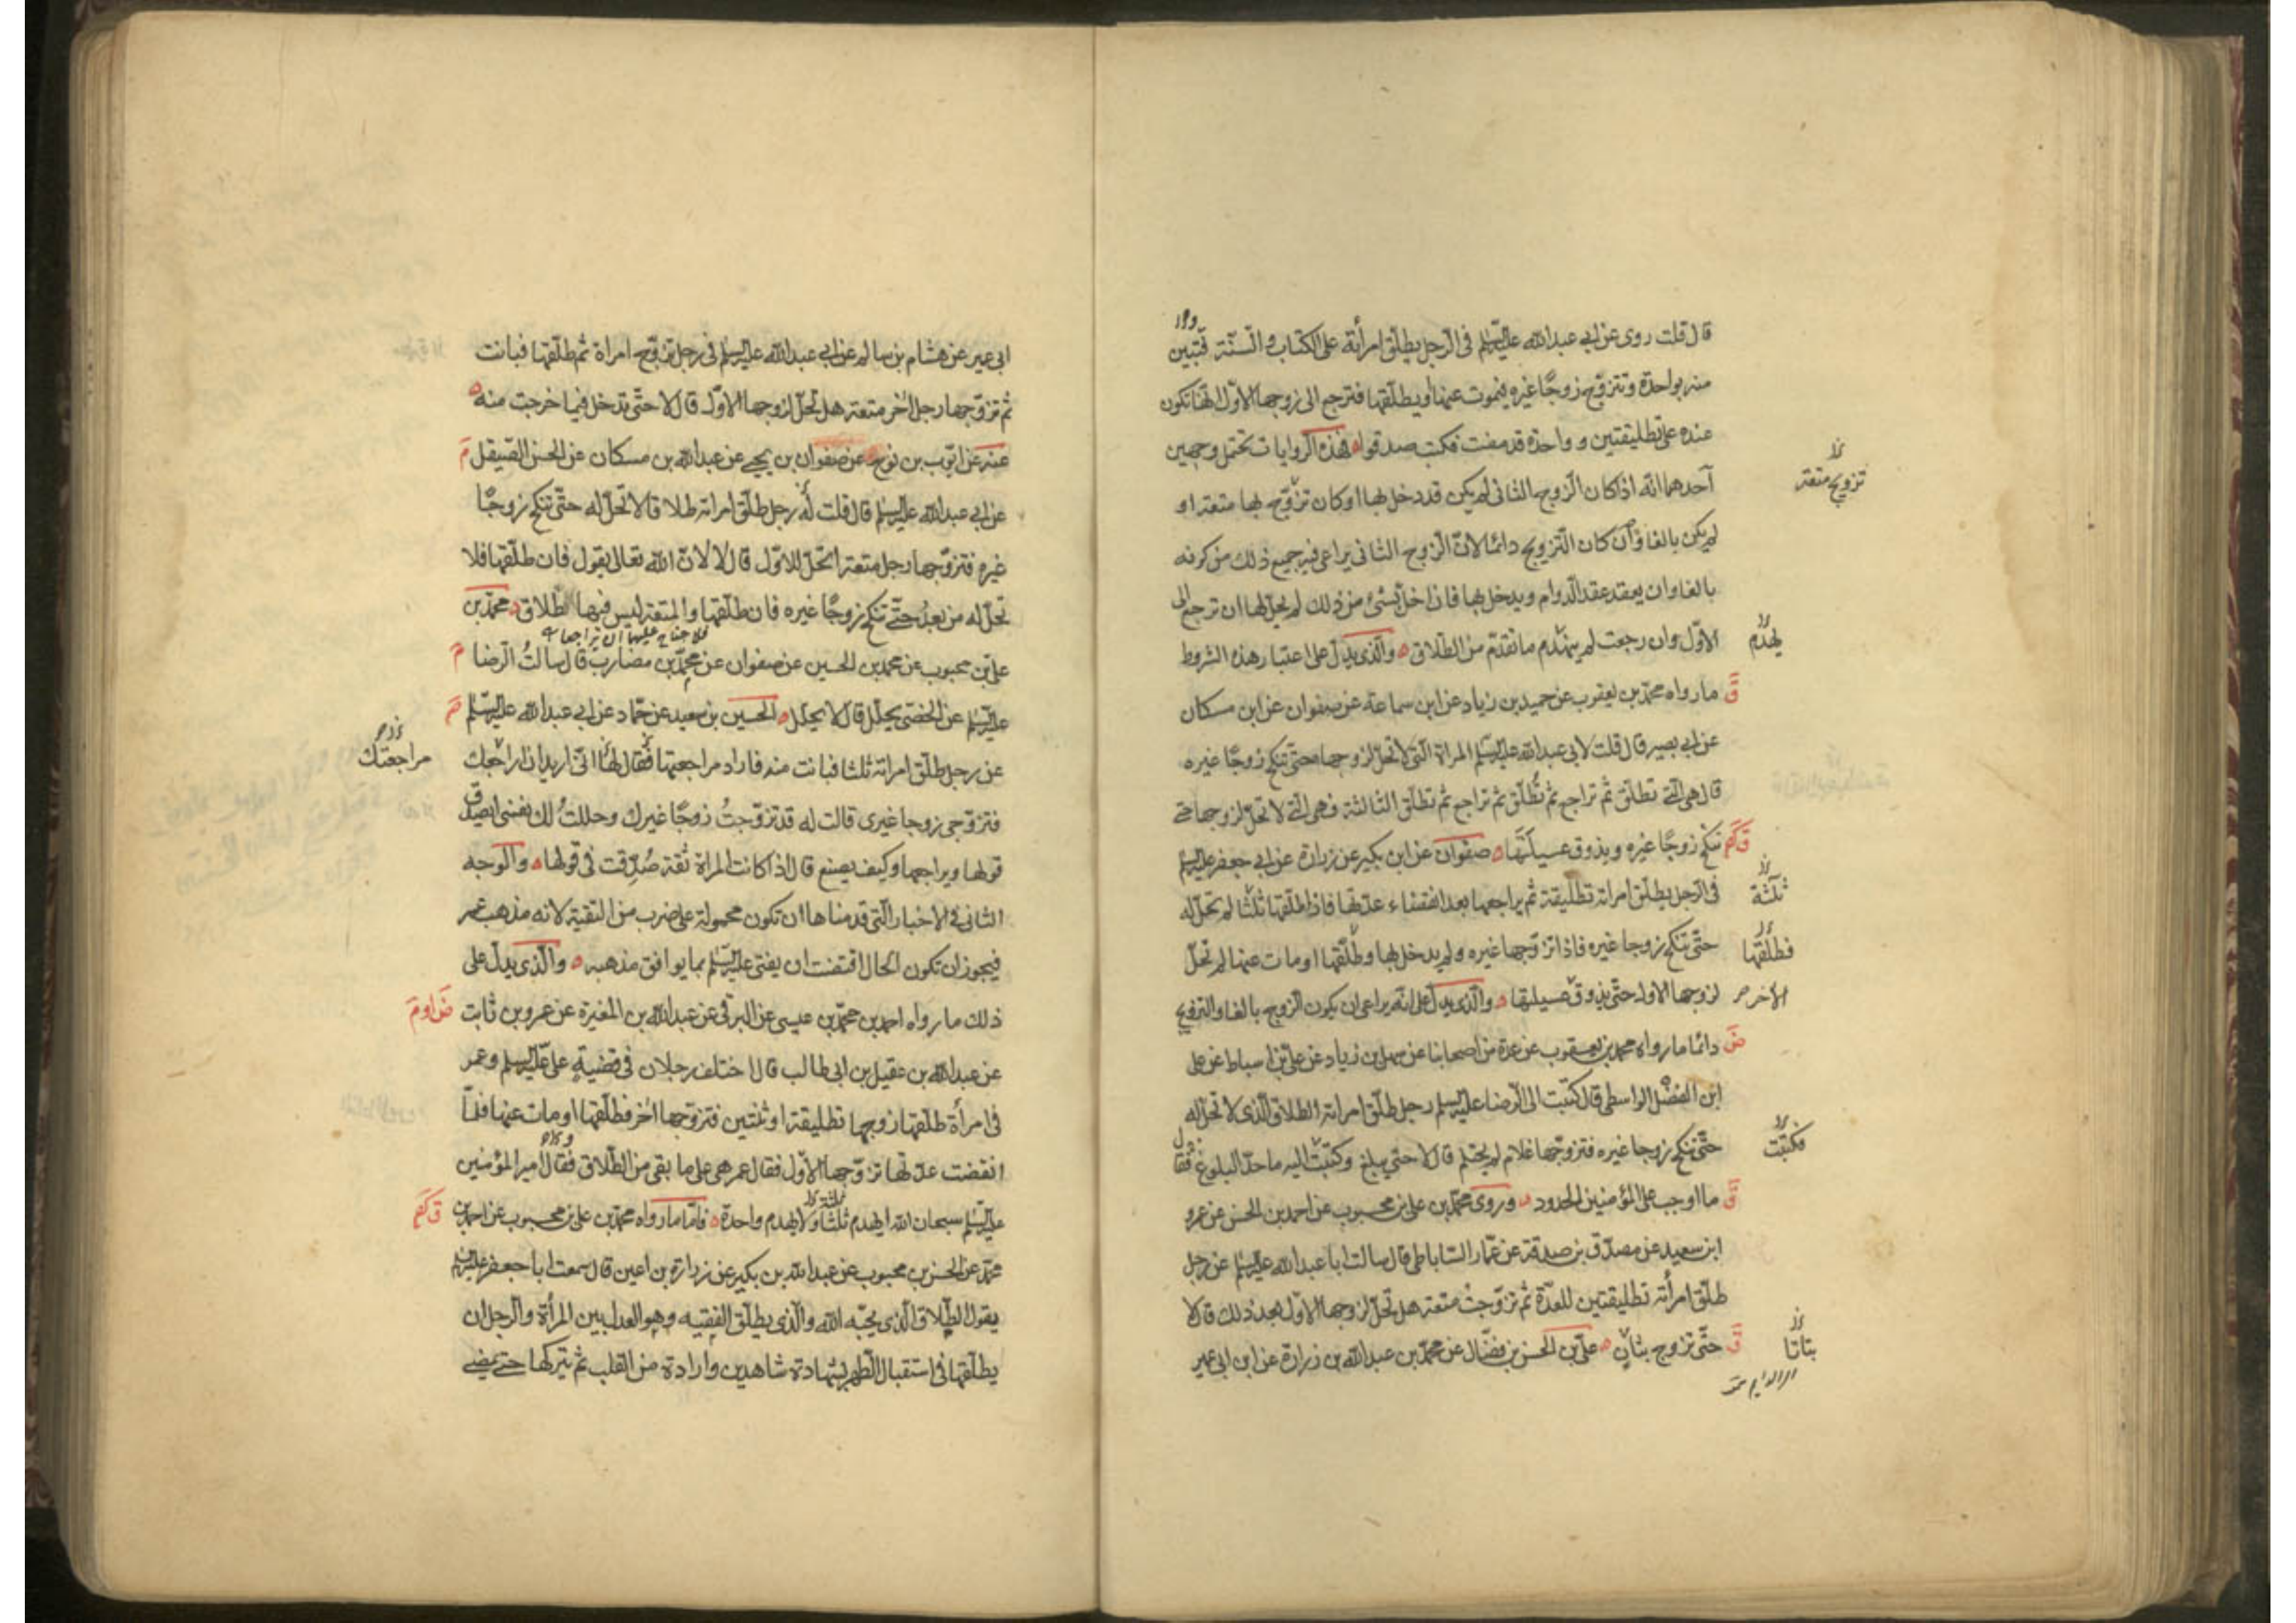 قال قلت روى عن ابي عبدالله عليه السلم في الرجل يطلق امرأته على الكتاب والسنة فتبين
منه بواحدة وتتزوج زوجًا غيره فيموت عنها او يطلقها فترجع الى زوجها الاول انها تكون
عنده على تطليقتين و واحدة قد مضت فكتب صدقوا فهذه الروايات تحتمل وجهين
احدهما انه اذا كان الزوج الثانى لم يكن قد دخل بها او كان تزوج بها متعة او
تزويج متعة
لم يكن بالغا وان كان التزويج دائما لان الزوج الثانى يراعى فيه جميع ذلك من كونه
بالغا وان يعقد عقد الدوام ويدخل بها فان اخل بشئ من ذلك لم يحل لها ان ترجع الى
الاول وان رجعت لم ينهدم ما تقدم من الطلاق والذى يدل على اعتبار هذه الشروط
يهدم
ق ما رواه محمد بن يعقوب عن حميد بن زياد عن ابن سماعة عن صفوان عن ابن مسكان
عن ابي بصير قال قلت لابى عبدالله عليه السلم المراة التى لا تحل لزوجها حتى تنكح زوجًا غيره
قال هى التى تطلق ثم تراجع ثم تطلق ثم تراجع ثم تطلق الثالثة فهى التى لا تحل لزوجها حتى
تنكح زوجًا غيره ويذوق عسيلتها صفوان عن ابن بكير عن زرارة عن ابى جعفر عليه السلم
فى الرجل يطلق امراته تطليقة ثم يراجعها بعد انقضاء عدتها فاذا طلقها ثلثا لم تحل له
ثلثة
حتى تنكح زوجا غيره فاذا تزوجها غيره ولم يدخل بها وطلقها او مات عنها لم تحل
فطلقها
لزوجها الاول حتى يذوق عسيلتها والذى يدل على انه يراعى ان يكون الزوج بالغا والتزويج
الاخر
ض دائما ما رواه محمد بن يعقوب عن عدة من اصحابنا عن سهل بن زياد عن على بن اسباط عن على
ابن الفضل الواسطى قال كتبت الى الرضا عليه السلم رجل طلق امراته الطلاق الذى لا تحل له
حتى تنكح زوجا غيره فتزوجها غلام لم يحتلم قال لا حتى يبلغ وكتبت اليه ما حد البلوغ فقال
فكتبت
ق ما اوجب على المؤمنين الحدود وروى محمد بن على بن محبوب عن احمد بن الحسن عن عمرو
ابن سعيد عن مصدق بن صدقة عن عمار الساباطى قال سالت ابا عبدالله عليه السلم عن رجل
طلق امرأته تطليقتين للعدة ثم تزوجت متعة هل تحل لزوجها الاول بعد ذلك قال لا
ق حتى تزوج بتاتٍ على بن الحسن بن فضال عن محمد بن عبدالله بن زرارة عن ابن ابى عمير
بتاتا
ابى عمير عن هشام بن سالم عن ابى عبدالله عليه السلم فى رجل تزوج امراة ثم طلقها فبانت
ثم تزوجها رجل اخر متعة هل تحل لزوجها الاول قال لا حتى تدخل فيما خرجت منه
عنه عن ايوب بن نوح عن صفوان بن يحيى عن عبدالله بن مسكان عن الحسن الصيقل م
عن ابى عبدالله عليه السلم قال قلت له رجل طلق امراته طلاقا لا تحل له حتى تنكح زوجًا
غيره فتزوجها رجل متعة اتحل للاول قال لا لان الله تعالى يقول فان طلقها فلا
تحل له من بعدُ حتى تنكح زوجًا غيره فان طلقها والمتعة ليس فيها طلاق محمد بن
فلا جناح عليهما ان يتراجعا
على بن محبوب عن محمد بن الحسين عن صفوان عن محمد بن مضارب قال سالتُ الرضا م
عليه السلم عن الخصى يحلل قال لا يحلل الحسين بن سعيد عن حماد عن ابى عبدالله عليه السلم
عن رجل طلق امراته ثلثا فبانت منه فاراد مراجعتها فقال لها انى اريد ان اراجعك
مراجعتك
فتزوجى زوجا غيرى قالت له قد تزوجتُ زوجًا غيرك وحللتُ لك نفسى ايصدق
قولها ويراجعها وكيف يصنع قال اذا كانت المراة ثقة صُدّقت فى قولها والوجه
الثانى فى الاخبار التى قدمناها ان تكون محمولة على ضرب من التقية لانه مذهب عمر
فيجوز ان تكون الحال اقتضت ان يفتى عليه السلم بما يوافق مذهبه والذى يدل على
ذلك ما رواه احمد بن محمد بن عيسى عن البرقى عن عبدالله بن المغيرة عن عمرو بن ثابت
عن عبدالله بن عقيل بن ابى طالب قال اختلف رجلان فى قضيةٍ على عليه السلم وعمر
فى امرأة طلقها زوجها تطليقة او ثنتين فتزوجها اخر فطلقها او مات عنها فلما
انقضت عدتها تزوجها الاول فقال عمر هى على ما بقى من الطلاق فقال امير المؤمنين
عليه السلم سبحان الله ايهدم ثلثا ولا يهدم واحدة فاما ما رواه محمد بن على بن محبوب عن احمد بن
محمد عن الحسن بن محبوب عن عبدالله بن بكير عن زرارة بن اعين قال سمعت ابا جعفر عليه السلم
يقول الطلاق الذى يحبه الله والذى يطلق الفقيه وهو العدل بين المرأة والرجل ان
يطلقها فى استقبال الطهر بشهادة شاهدين وارادة من القلب ثم يتركها حتى يمضى